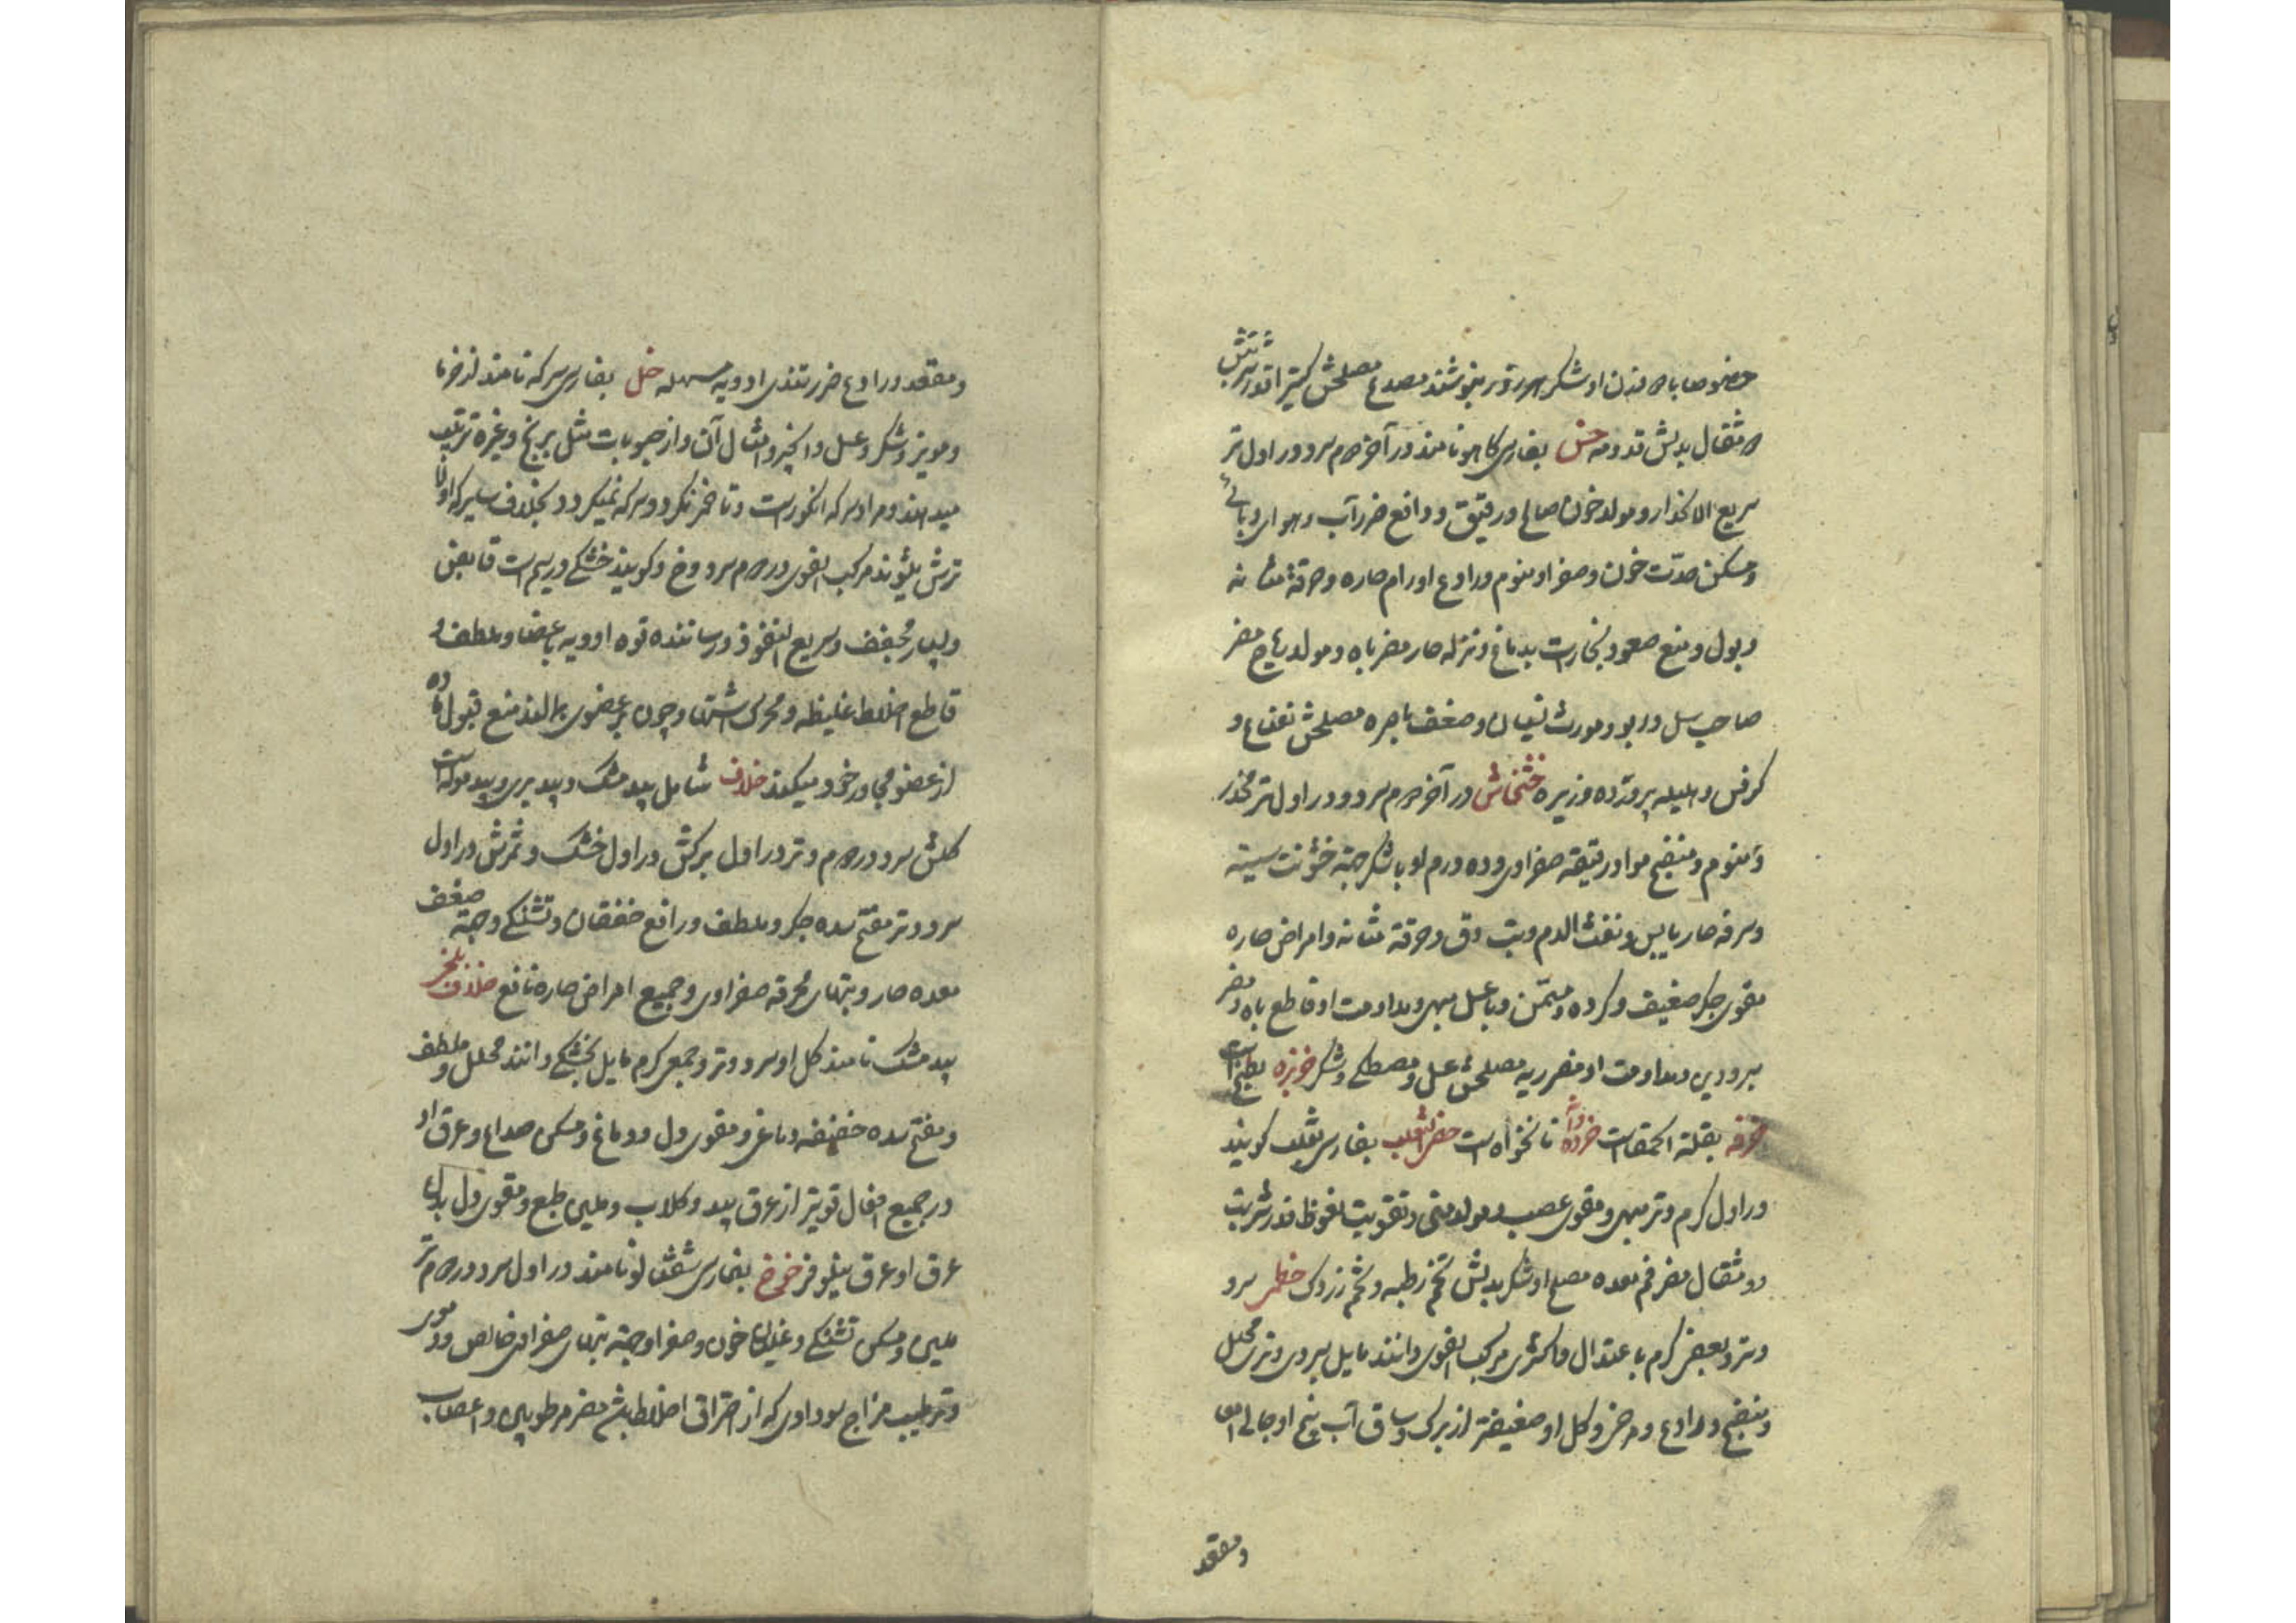 خصوصا با هم وزن او شکر هر روز بنوشند مصدع مصلحش کتیرا قدر شربتش
مثقال بدلش تودومه خس بفارسی کاهو نامند در آخر دوم سرد و در اول تر
سریع الانحدار و مولد خون صالح و رقیق و دافع ضرر آب و هوای وبائی
و مسکن حدّت خون و صفرا و منوم و رادع اورام حاره و حرقة مثانه
و بول و منع صعود بخارات بدماغ و نزله حار مضر باه و مولد ریاح مضر
صاحب سل و ربو و مورث نسیان و ضعف باصره مصلحش نعناع و
کرفس و هلیله پرورده و زیره خشخاش در آخر دوم سرد و در اول تر مخدر
و منوم و منضج مواد رقیقه صفراوی و ده درم او با شکر جهة خشونت سینه
و سرفه حار یابس و نفث الدم و تب دق و حرقة مثانه و امراض حاره
مقوی جکر ضعیف و کرده و مسمّن و با عسل مبهی و مداومت او قاطع باه و مضر
مبرودین و مداومت او مضر ریه مصلحش عسل و مصطکی و شکر خربزه بطیخ است
خرفه بقلة الحمقاست خردوانه نانخواه است خصی الثعلب بفارسی ثعلب کویند
در اول کرم و تر مبهی و مقوی عصب و مولد منی و تقویت نعوظ قدر شربت
دو مثقال مضر فم معده مصلح او شکر بدلش تخم رطبه و تخم زردک خطمی سرد
و تر و بعضی کرم باعتدال و اکثری مرکب القوی دانند مایل بسردی و تری محلل
و منضج و رادع و مرخی و کل او ضعیفتر از برک و ساق آب بیخ او جالی امعا
و مقعد
و مقعد و رادع ضرر تندی ادویه مسهله خل بفارسی سرکه نامند از خرما
و مویز و شکر و عسل و انجیر و امثال آن و از حبوبات مثل برنج و غیره ترتیب
میدهند و مراد سرکه انکور است و تا خمر نکردد سرکه نمیکردد بخلاف سایر که اولا
ترش میشوند مرکب القوی در دوم سرد و خ و کویند خشکی در سیم است قابض
و بسیار مجفف و سریع النفوذ و رساننده قوه ادویه باعضا و ملطف و
قاطع اخلاط غلیظه و محرک اشتها و چون بر عضوی بمالند منع قبول ماده
از عضو مجاور خود میکند خلاف شامل بید مشک و بید بری و بید موله است
کلش سرد در دوم و تر در اول برکش در اول خشک و ثمرش در اول
سرد و تر مفتح سده جکر و ملطف و رافع خفقان و تشنکی و جهة ضعف
معده حار و تبهای محرقه صفراوی و جمیع امراض حاره نافع خلاف بلخی
بید مشک نامند کل او سرد و تر و جمعی کرم مایل بخشکی دانند محلل و ملطف
و مفتح سده خفیفه دماغی و مقوی دل و دماغ و مسکن صداع و عرق او
در جمیع افعال قویتر از عرق بید و کلاب و ملین طبع و مقوی دل بدل
عرق او عرق نیلوفر خوخ بفارسی شفتالو نامند در اول سرد در دوم تر
ملین و مسکن تشنکی و غلیان خون و صفرا و جهة تبهای صفراوی خالص و دموی
و ترطیب مزاج سوداوی که از احتراق اخلاط باشد مضر مرطوبین و اعصاب